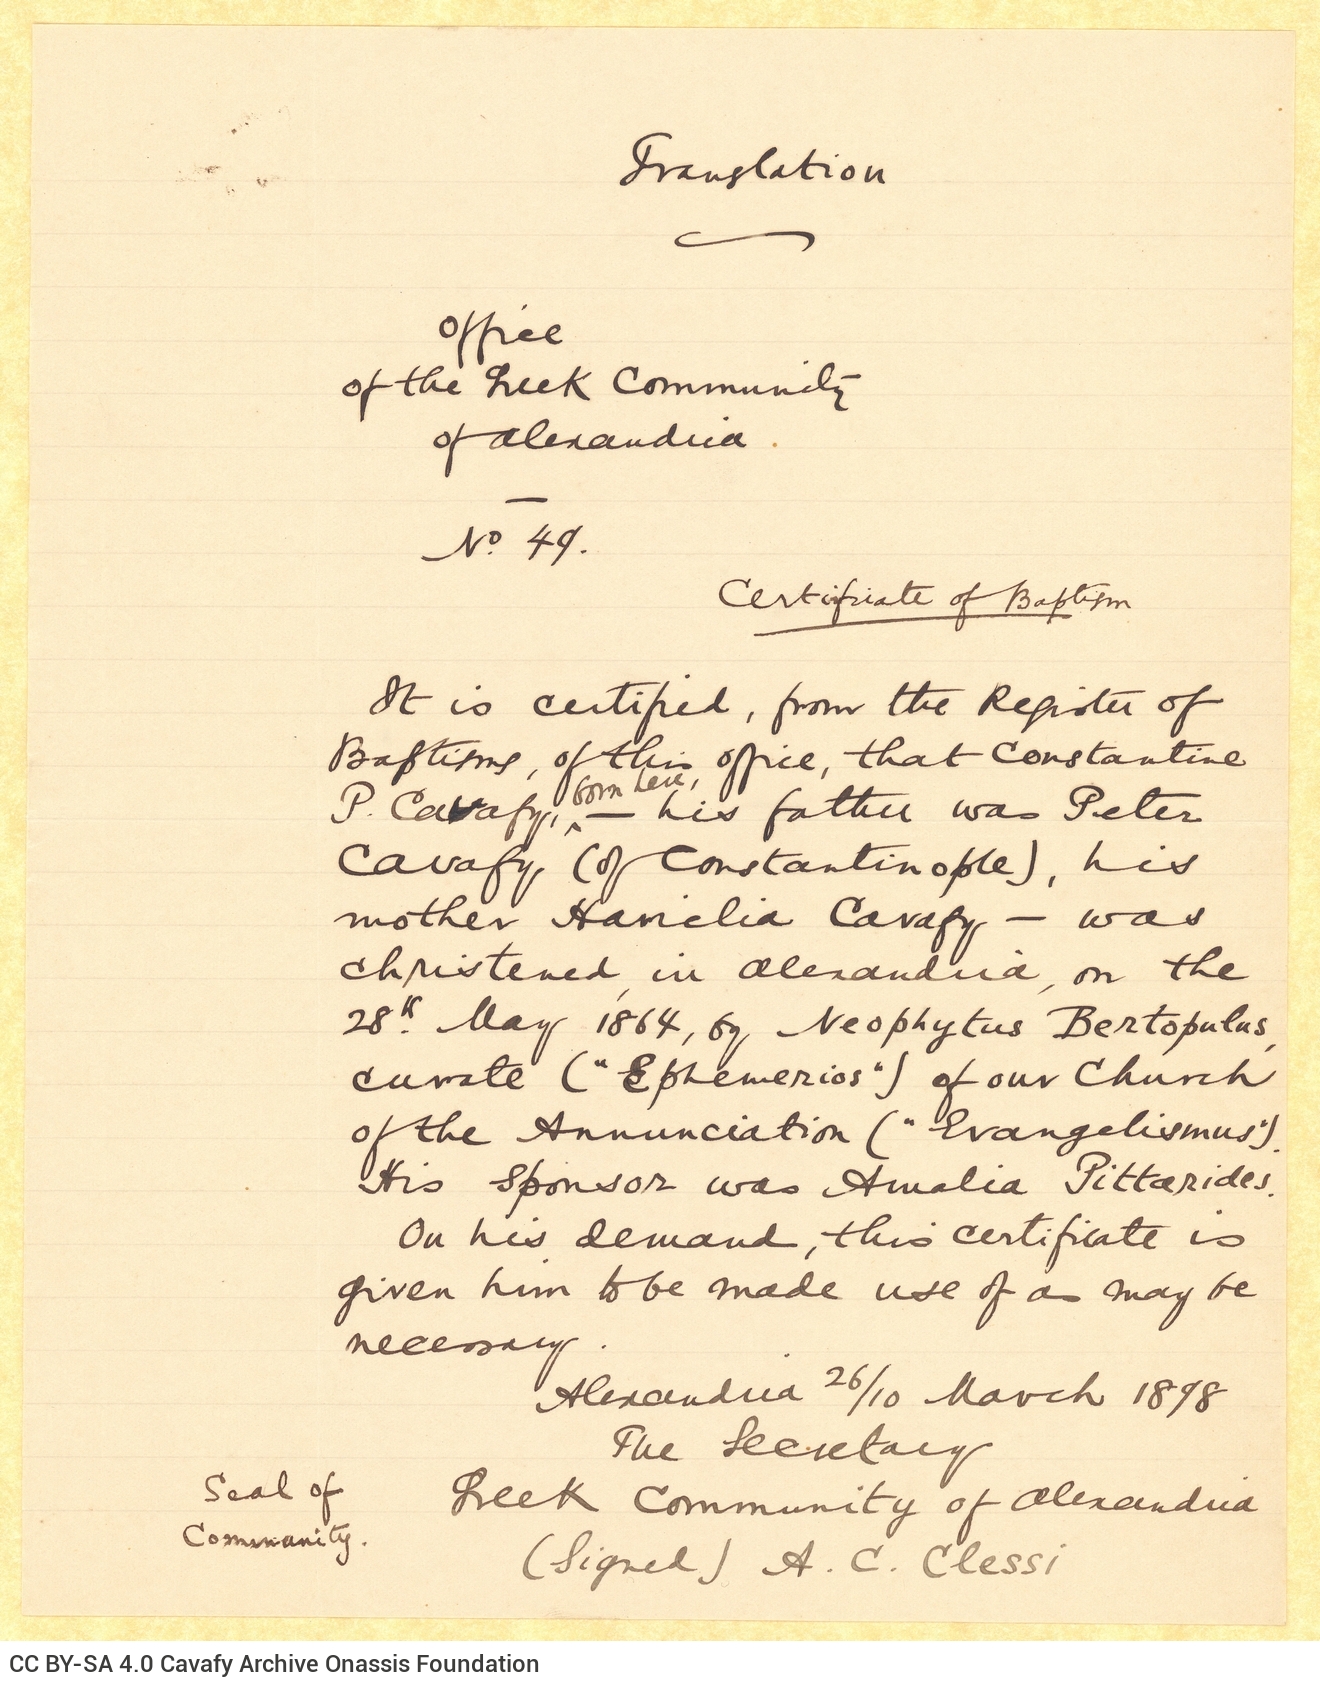 Translation
Office
of the Greek Community
of Alexandria.
No 49.
Certificate of Baptism
It is certified, from the Register of
Baptisms, of this office, that Constantine
born here,
P. Cavafy, — his father was Peter
Cavafy (of Constantinople), his
mother Hariclia Cavafy — was
christened, in Alexandria, on the
28th May 1864, by Neophytus Bertopulus,
curate ("Ephemerios") of our Church
of the Annunciation ("Evangelismus").
His sponsor was Amalia Pittarides.
On his demand, this certificate is
given him to be made use of as may be
necessary.
Alexandria 26/10 March 1898
The Secretary
Seal of
Community.
Greek Community of Alexandria
(Signed) A. C. Clessi
CC BY-SA 4.0 Cavafy Archive Onassis Foundation